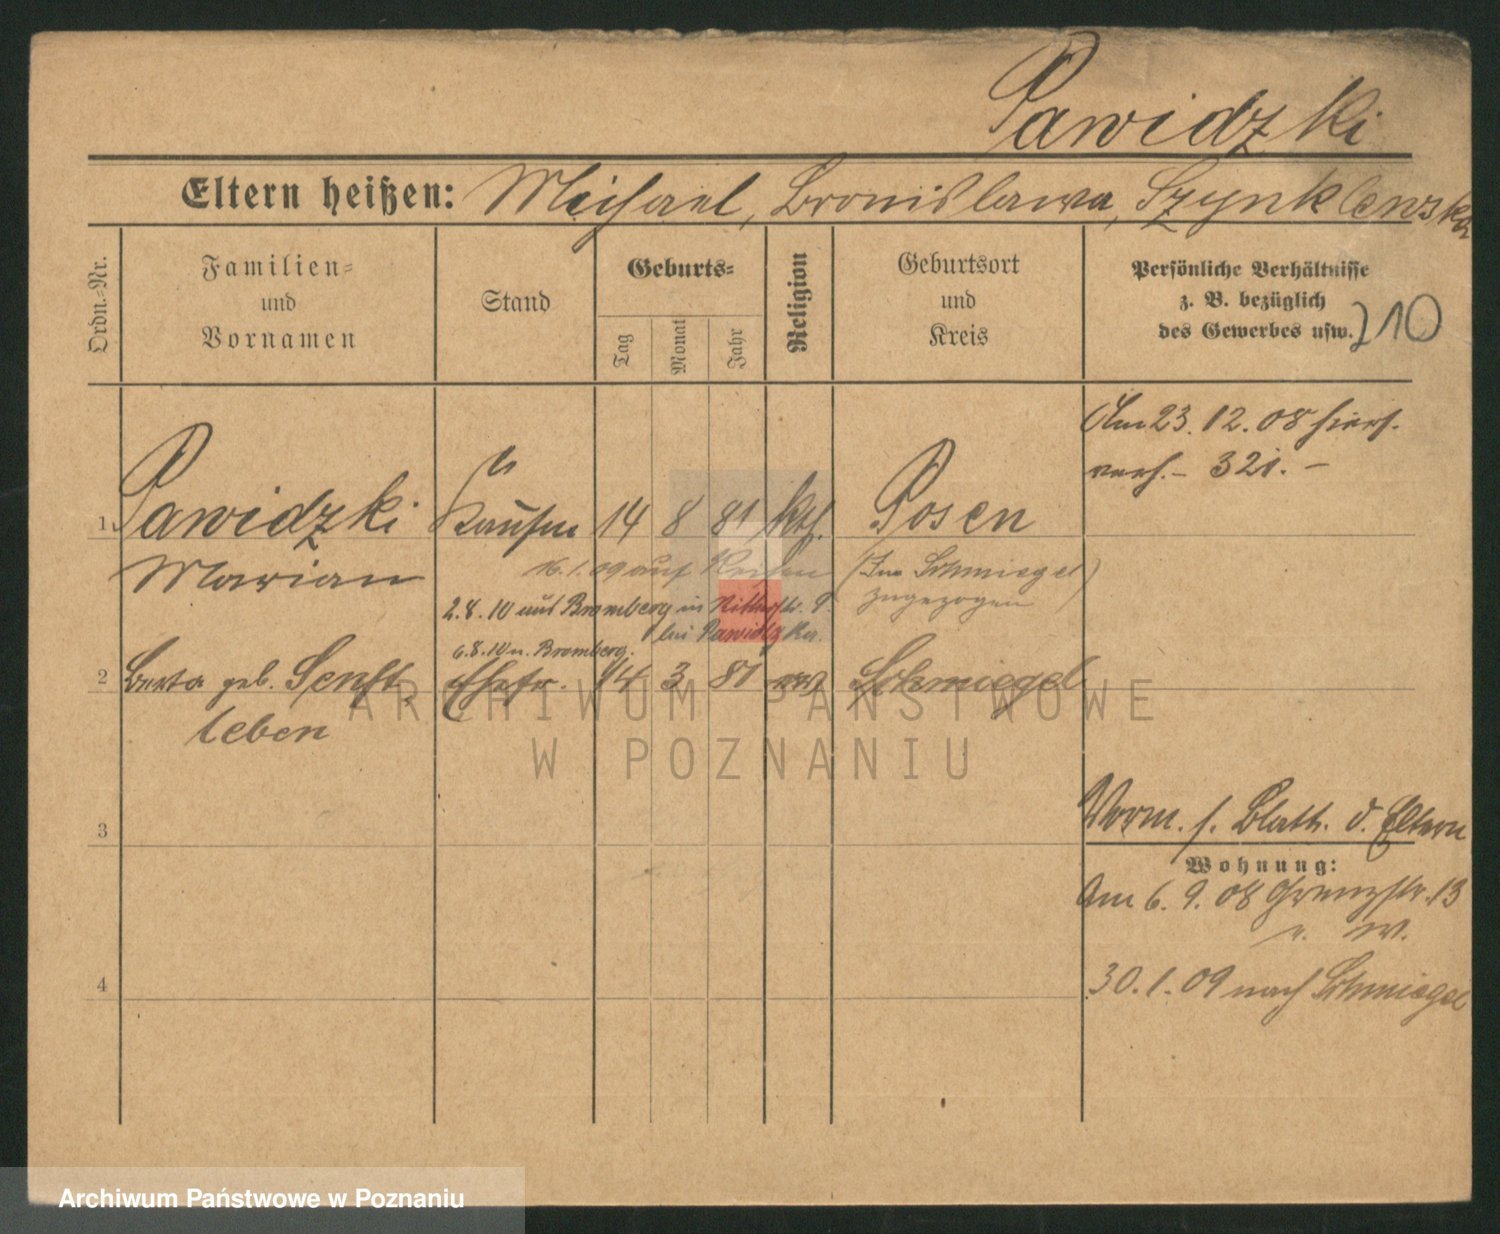 Pawidzki
Eltern heißen: Michael, Bronislawa, Szynklewska
Ordn.-Nr.
Familien-
und
Vornamen
Stand
Geburts-
Tag
Monat
Jahr
Religion
Geburtsort
und
Kreis
Persönliche Verhältnisse
z. B. bezüglich
des Gewerbes usw.
210
Am 23. 12. 08 hiers.
verh. – 321. –
1. Pawidzki Kaufm 14 8 81 kth. Posen
Marian
16. 1. 09 auf Reisen
(In Schmiegel
zugezogen)
2. 8. 10 aus Bromberg in Ritterstr. 9.
bei Pawidzka.
6. 8. 10 n. Bromberg.
2 Berta geb. Senft Ehefr. 14 3 81 Schmiegel
leben
3
Vorm. s. Blatt. d. Eltern
Wohnung:
Am 6. 9. 08 Grenzstr. 13
v. W.
4
30. 1. 09 nach Schmiegel
ARCHIWUM PAŃSTWOWE
W POZNANIU
Archiwum Państwowe w Poznaniu